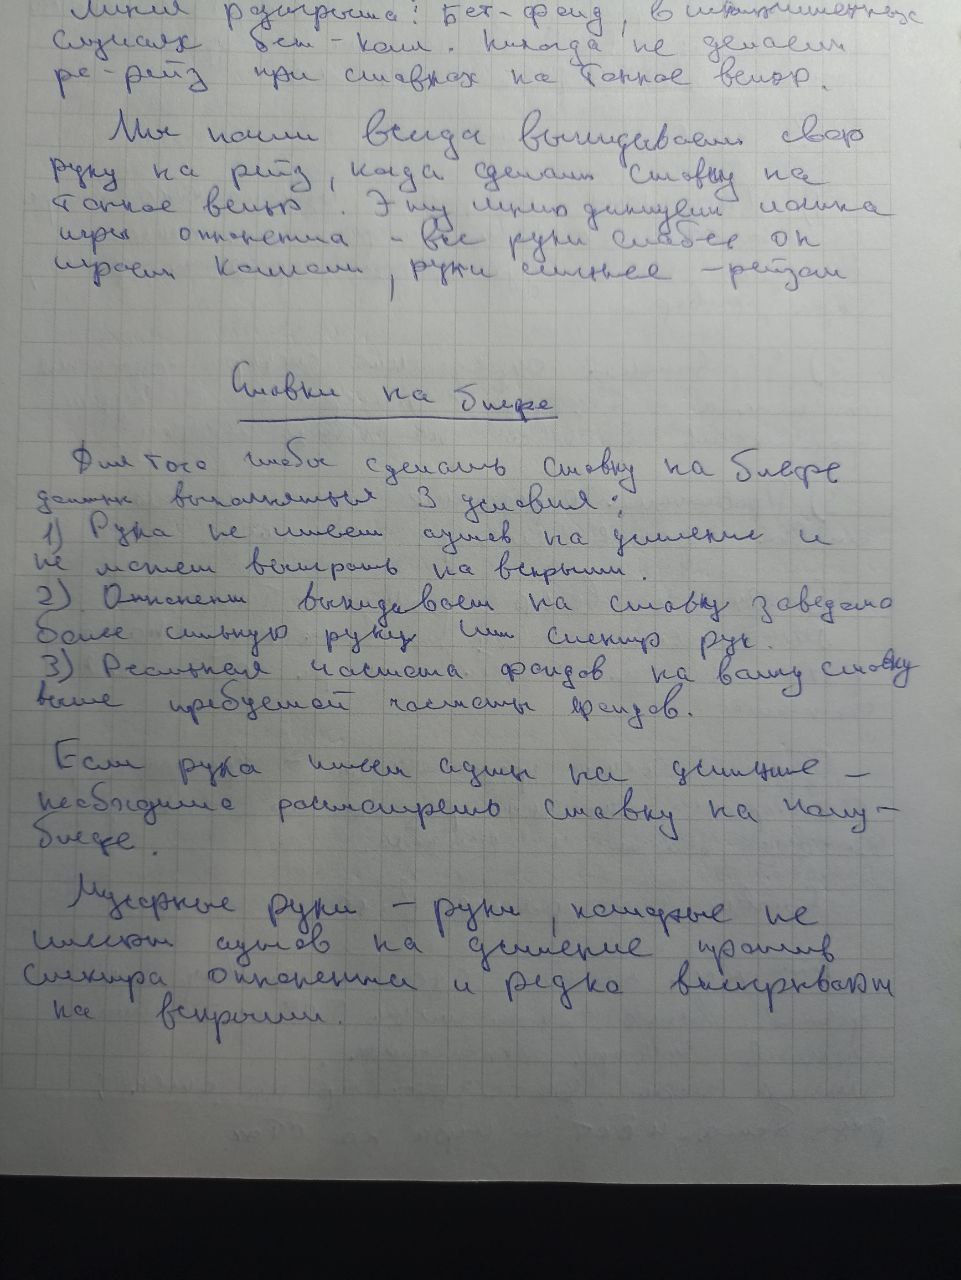 Линия розыгрыша: Бет-фолд, в исключительных
случаях бет-колл. Никогда не делаем
ре-рейз при ставках на тонкое велью.
Мы почти всегда выкидываем свою
руку на рейз, когда сделали ставку на
тонкое велью. Эту линию диктует логика
игры оппонента - все руки слабее он
играет коллом, руки сильнее - рейзом
Ставки на блефе
Для того чтобы сделать ставку на блефе
должны выполняться 3 условия:
1) Рука не имеет аутов на усиление и
не может выиграть на вскрытии.
2) Оппонент выкидывает на ставку заведомо
более сильную руку или спектр рук.
3) Реальная частота фолдов на вашу ставку
выше требуемой частоты фолдов.
Если рука имеет ауты на усиление -
необходимо рассмотреть ставку на полу-
блефе.
Мусорные руки - руки, которые не
имеют аутов на усиление против
спектра оппонента и редко выигрывают
на вскрытии.